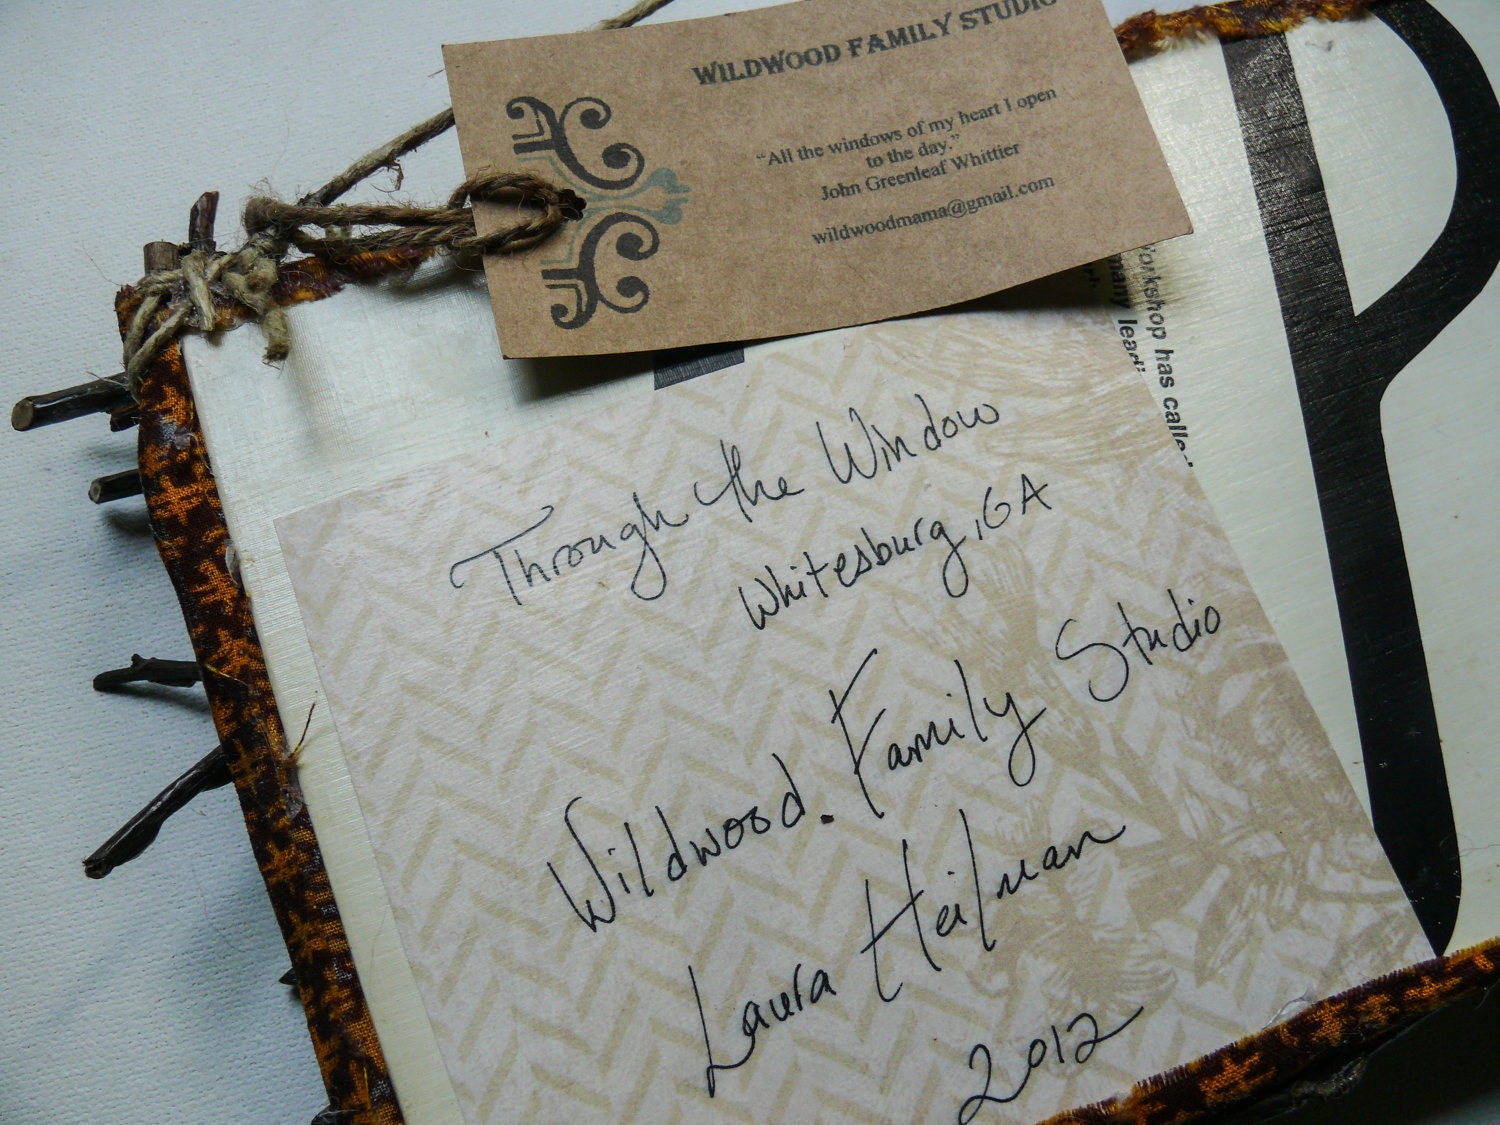 WILDWOOD FAMILY STUDIO
"All the windows of my heart I open
to the day."
John Greenleaf Whittier
wildwoodmama@gmail.com
Workshop has called
many
Through the Window
Whitesburg, GA
Wildwood Family Studio
Laura Heilman
2012